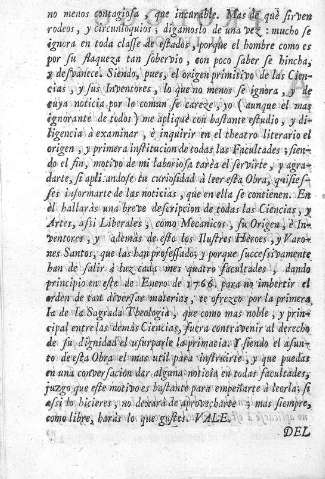 no menos contagiosa, que incurable. Mas de què sirven
rodeos, y circunloquios, digamoslo de una vez: mucho se
ignora en toda classe de estados, porque el hombre como es
por su flaqueza tan sobervio, con poco saber se hincha,
y desvanece. Siendo, pues, el origen primitivo de las Cien-
cias, y sus Inventores, lo que no menos se ignora, y de
cuya noticia por lo comun se careze, yo (aunque el mas
ignorante de todos) me apliquè con bastante estudio, y di-
ligencia à examinar, è inquirir en el theatro literario el
origen, y primera institucion de todas las Facultades; sien-
do el fin, motivo de mi laboriosa tarèa el servirte, y agra-
darte, si aplicandose tu curiosidad à leer esta Obra, quisies-
ses informarte de las noticias, que en ella se contienen. En
èl hallaràs una breve descripcion de todas las Ciencias, y
Artes, assi Liberales, como Mecanicos, su Origen, è In-
ventores, y ademàs de esto los Ilustres Hèroes, y Varo-
nes Santos, que las han professado; y porque successivamente
han de salir à luz cada mes quatro facultades, dando
principio en este de Enero de 1766. para no imbertir el
orden de tan diversas materias, te ofrezco por la primera
la de la Sagrada Theologia, que como mas noble, y prin-
cipal entre las demàs Ciencias, fuera contravenir al derecho
de su dignidad el usurparle la primacia. Y siendo el asun-
to de esta Obra el mas util para instruirte, y que puedas
en una conversacion dar alguna noticia en todas facultades,
juzgo que este motivo es bastante para empeñarte à leerla; si
assi lo hicieres, no dexarà de aprovecharte; mas siempre,
como libre, haràs lo que gustes. VALE.
DEL